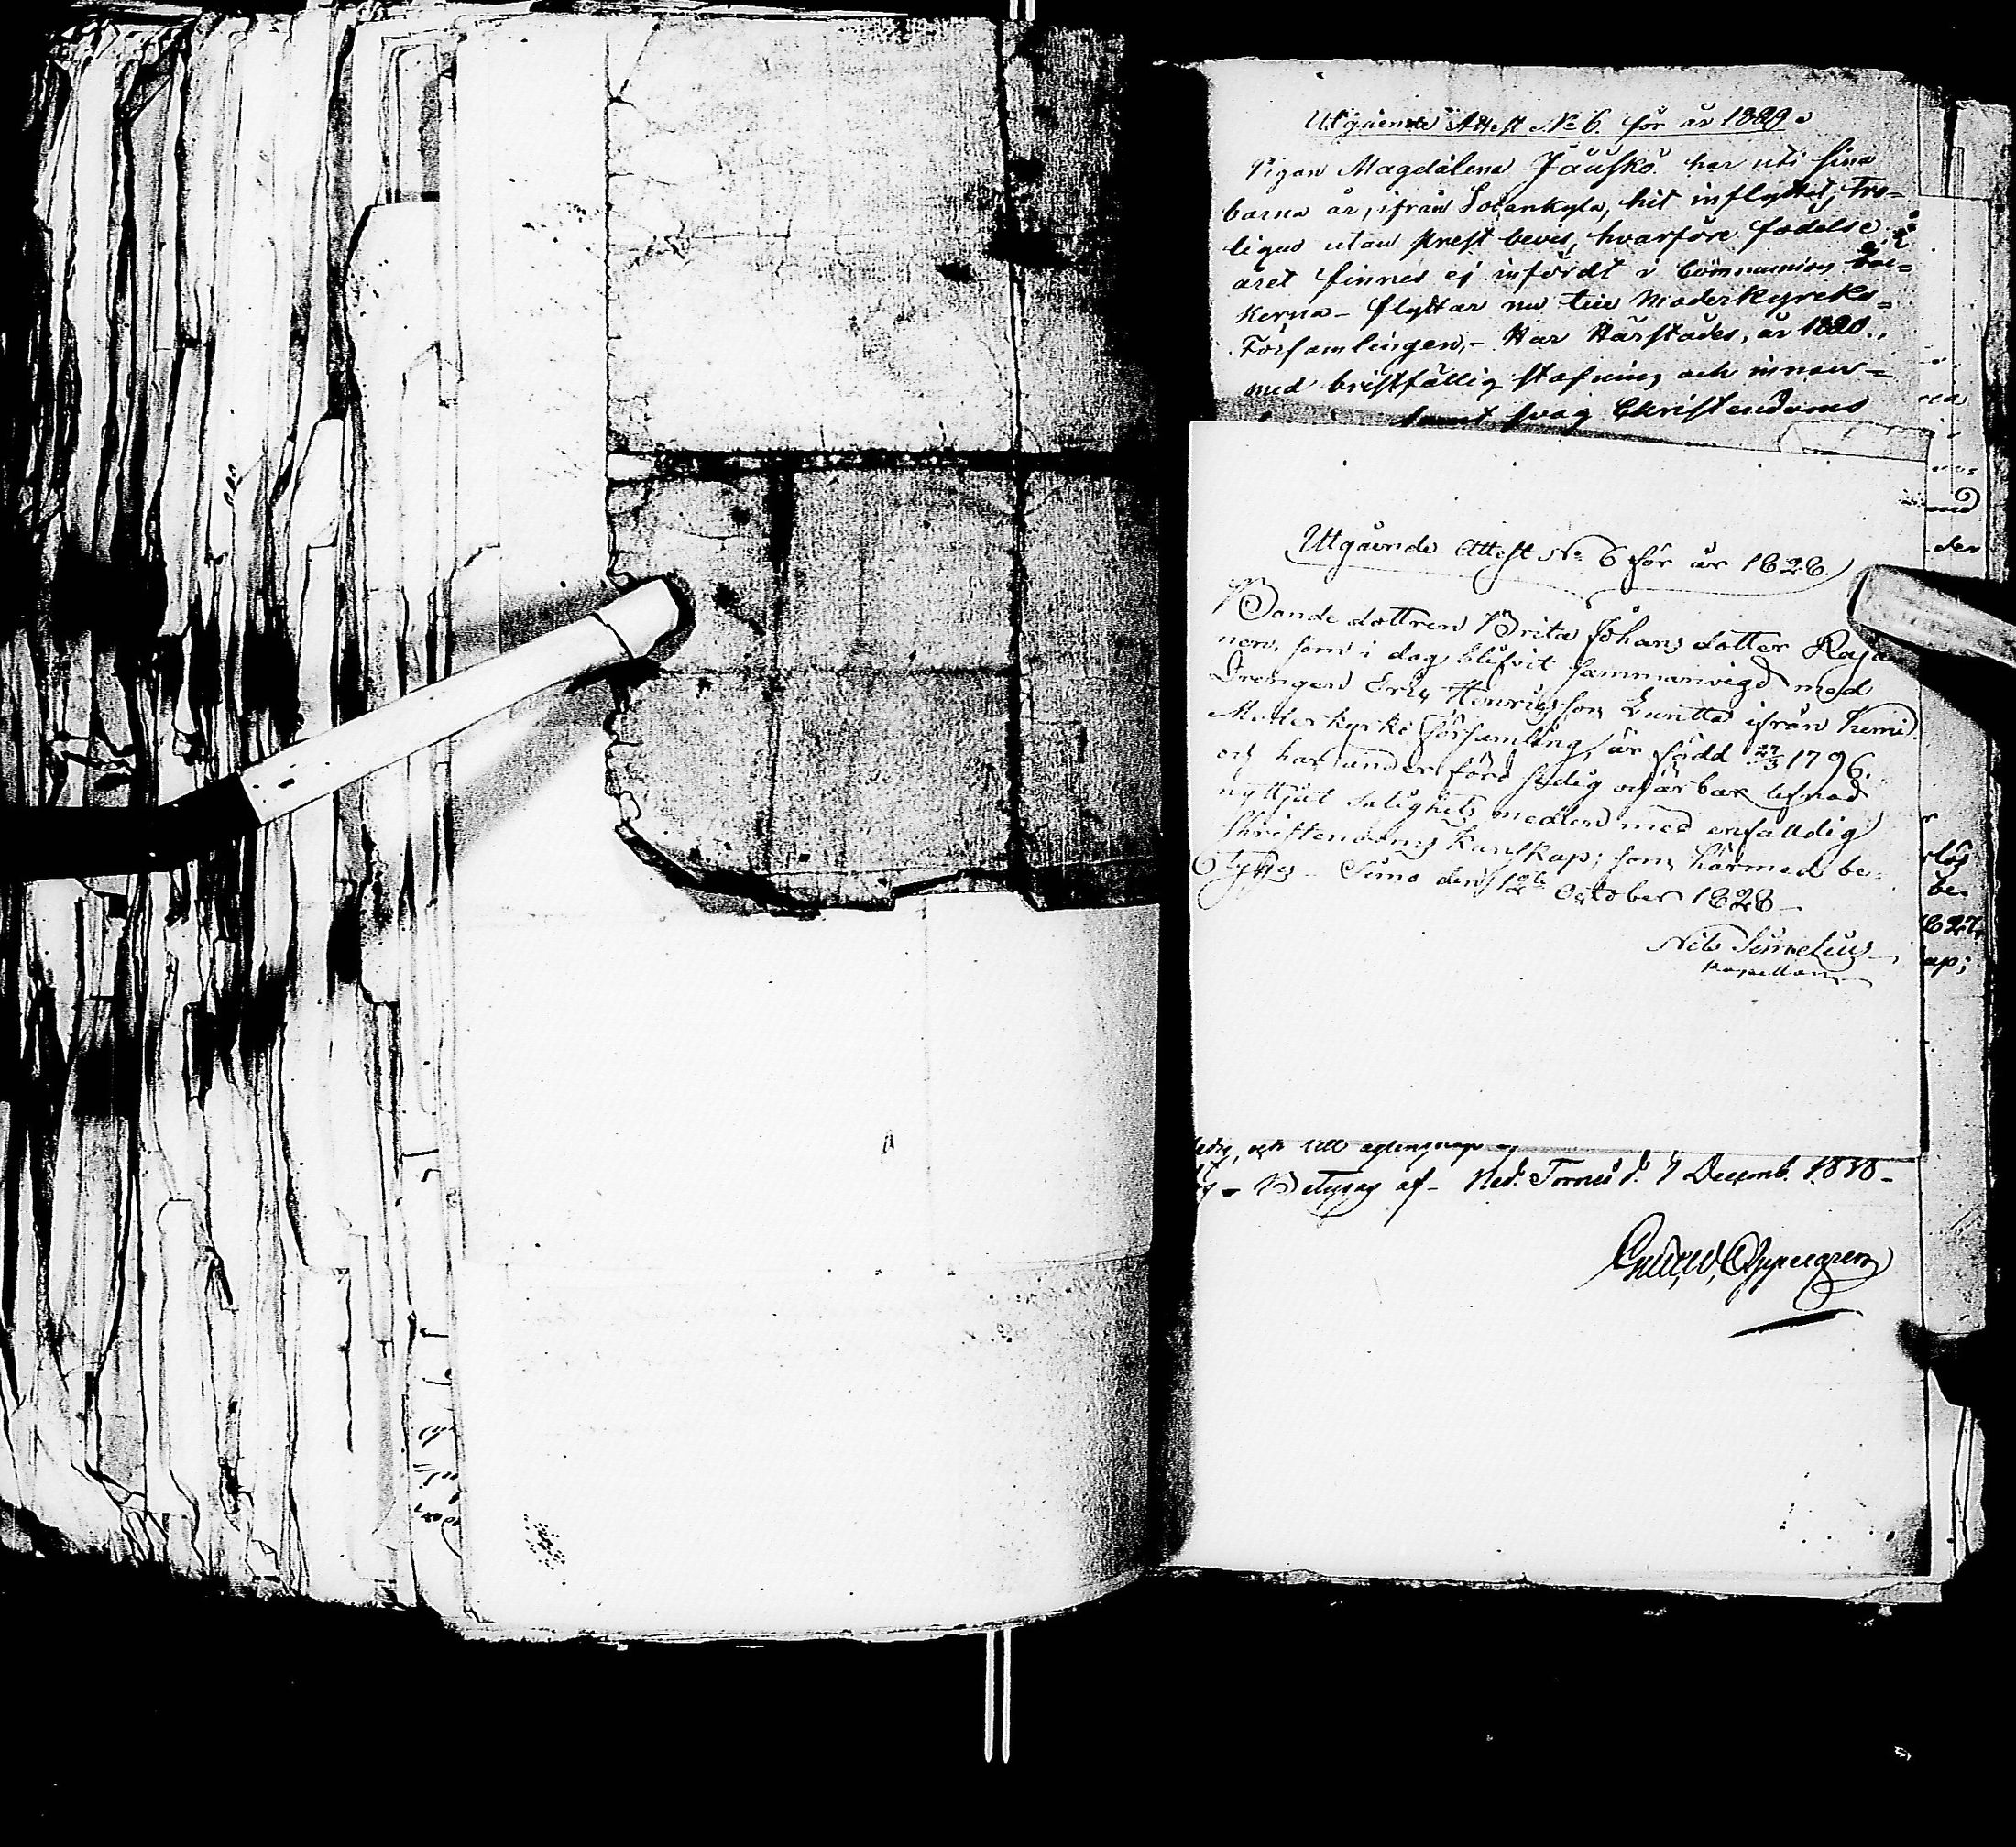 Utgående Attest No 6. för år 1829.
Pigan Magdalena Jáusko har uti sina
barna år, ifrån Sodankyla, hit inflyttat, Tro-
ligen utan prest bevis, hvarföre födelse
året finnes ej infördt i Communion böc-
kerna - flyttar nu till Moderkyrcko-
Församlingen, - Har Härstädes, år 1820.,
med bristfällig stafning och innan-
samt svag Christendoms
Utgående Attest No 6 för år 1828.
Bonde dottren Brita Johans dotter Raja
nen, som i dag blifvit sammanvigd med
Drengen Eric Henricsson Luntta ifrån Kemi
Moderkyrko församling, är född 27/3 1796.
och har under förd stadig och ärbar lefnad
nyttjat salighets medlen med enfalldig
Christendoms kunskap; som härmed be-
tyges - Simo den 12 October 1828 -
Nils
Kapellan
ledig, och till agtenskap
Betygas af - Ned. Torneå d. 7 Decemb. 1818 -
Appelgren
med
der
be-
827,
ap;